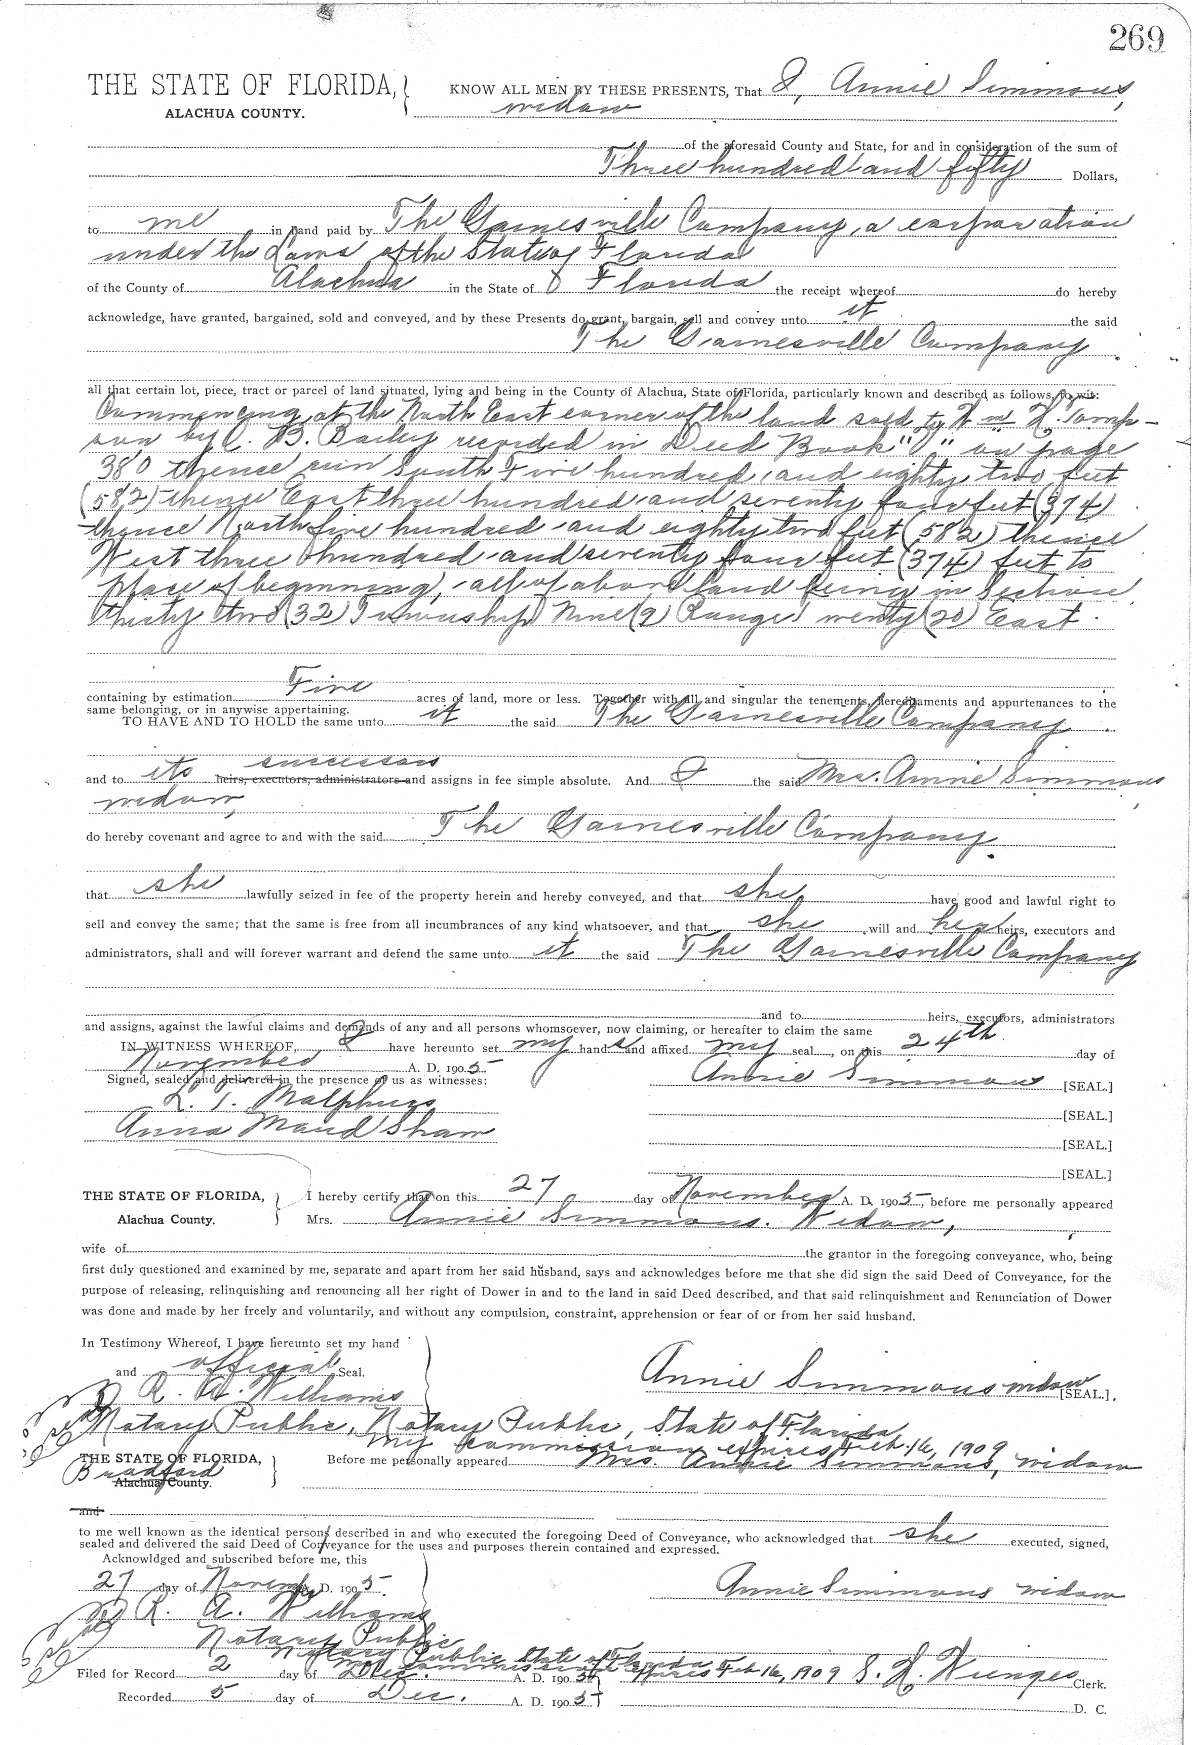 269
THE STATE OF FLORIDA, KNOW ALL MEN BY THESE PRESENTS, That I, Annie Simmons,
ALACHUA COUNTY. widow
of the aforesaid County and State, for and in consideration of the sum of
Three hundred and fifty Dollars,
to me in hand paid by The Gainesville Company, a corporation
under the Laws of the State of Florida
of the County of Alachua in the State of Florida the receipt whereof do hereby
acknowledge, have granted, bargained, sold and conveyed, and by these Presents do grant, bargain, sell and convey unto it the said
The Gainesville Company
all that certain lot, piece, tract or parcel of land situated, lying and being in the County of Alachua, State of Florida, particularly known and described as follows, to wit:
Commencing at the North East corner of the land sold to Wm H. Tomp-
son by C. B. Bailey recorded in Deed Book "O" on page
380 thence run South Five hundred and eighty two feet
(582) thence East three hundred and seventy four feet (374)
thence North five hundred and eighty two feet (582) thence
West three hundred and seventy four feet (374) feet to
place of beginning, all of above land being in Section
thirty two (32) Township Nine (9) Range twenty (20) East.
containing by estimation Five acres of land, more or less. Together with all and singular the tenements, hereditaments and appurtenances to the
same belonging, or in anywise appertaining.
TO HAVE AND TO HOLD the same unto it the said The Gainesville Company
successors
and to its heirs, executors, administrators and assigns in fee simple absolute. And I the said Mrs. Annie Simmons
widow,
do hereby covenant and agree to and with the said The Gainesville Company.
that she lawfully seized in fee of the property herein and hereby conveyed, and that she have good and lawful right to
sell and convey the same; that the same is free from all incumbrances of any kind whatsoever, and that she will and her heirs, executors and
administrators, shall and will forever warrant and defend the same unto it the said The Gainesville Company
and to heirs, executors, administrators
and assigns, against the lawful claims and demands of any and all persons whomsoever, now claiming, or hereafter to claim the same
IN WITNESS WHEREOF, I have hereunto set my hand and affixed my seal, on this 24th day of
November A. D. 1905
Signed, sealed and delivered in the presence of us as witnesses: Annie Simmons [SEAL.]
L. T. Malphurs [SEAL.]
Anna Maud Shaw [SEAL.]
[SEAL.]
THE STATE OF FLORIDA, I hereby certify that on this 27 day of November A. D. 1905, before me personally appeared
Alachua County. Mrs. Annie Simmons. Widow,
wife of the grantor in the foregoing conveyance, who, being
first duly questioned and examined by me, separate and apart from her said husband, says and acknowledges before me that she did sign the said Deed of Conveyance, for the
purpose of releasing, relinquishing and renouncing all her right of Dower in and to the land in said Deed described, and that said relinquishment and Renunciation of Dower
was done and made by her freely and voluntarily, and without any compulsion, constraint, apprehension or fear of or from her said husband.
In Testimony Whereof, I have hereunto set my hand
and official Seal. Annie Simmons widow [SEAL.]
R. A. Williams
Notary Public, Notary Public, State of Florida
My commission expires Feb. 16, 1909
THE STATE OF FLORIDA, Before me personally appeared Mrs. Annie Simmons, widow
Bradford
Alachua County.
and
to me well known as the identical person described in and who executed the foregoing Deed of Conveyance, who acknowledged that she executed, signed,
sealed and delivered the said Deed of Conveyance for the uses and purposes therein contained and expressed.
Acknowldged and subscribed before me, this
27 day of November A. D. 1905. Annie Simmons widow
R. A. Williams
Notary Public
Notary Public State of Florida
commission expires Feb 16, 1909
Filed for Record 2 day of Dec. A. D. 1905 Clerk.
Recorded 5 day of Dec. A. D. 1905 D. C.